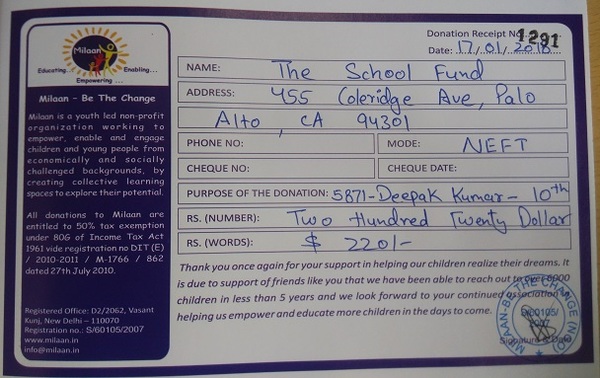 Milaan
Educating... Enabling...
Empowering ...
Milaan - Be The Change
Milaan is a youth led non-profit
organization working to
empower, enable and engage
children and young people from
economically and socially
challenged backgrounds, by
creating collective learning
spaces to explore their potential.
All donations to Milaan are
entitled to 50% tax exemption
under 80G of Income Tax Act
1961 vide registration no DIT (E)
/ 2010-2011 / M-1766 / 862
dated 27th July 2010.
Registered Office: D2/2062, Vasant
Kunj, New Delhi – 110070
Registration no.: S/60105/2007
www.milaan.in
info@milaan.in
Donation Receipt No 1291
Date: 17/01/2018
NAME: The School Fund
ADDRESS: 455 Coleridge Ave, Palo
Alto, CA 94301
PHONE NO: MODE: NEFT
CHEQUE NO: CHEQUE DATE:
PURPOSE OF THE DONATION: 5871-Deepak Kumar - 10th
RS. (NUMBER): Two Hundred Twenty Dollar
RS. (WORDS): $ 220/-
Thank you once again for your support in helping our children realize their dreams. It
is due to support of friends like you that we have been able to reach out to over 6000
children in less than 5 years and we look forward to your continued association in
helping us empower and educate more children in the days to come.
MILAAN-BE THE CHANGE (NGO)
S/60105/
2007
Signature & Date